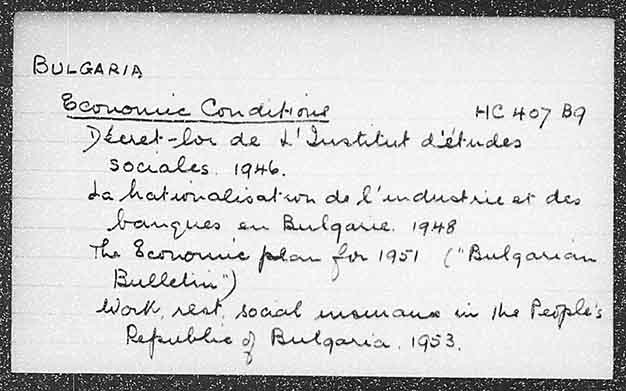 BULGARIA
Economic Conditions HC 407 B9
Décret-loi de L'Institut d'études
sociales. 1946.
La nationalisation de l'industrie et des
banques en Bulgarie. 1948
The Economic plan for 1951 ("Bulgarian
Bulletin")
Work, rest, social insurance in the People's
Republic of Bulgaria. 1953.